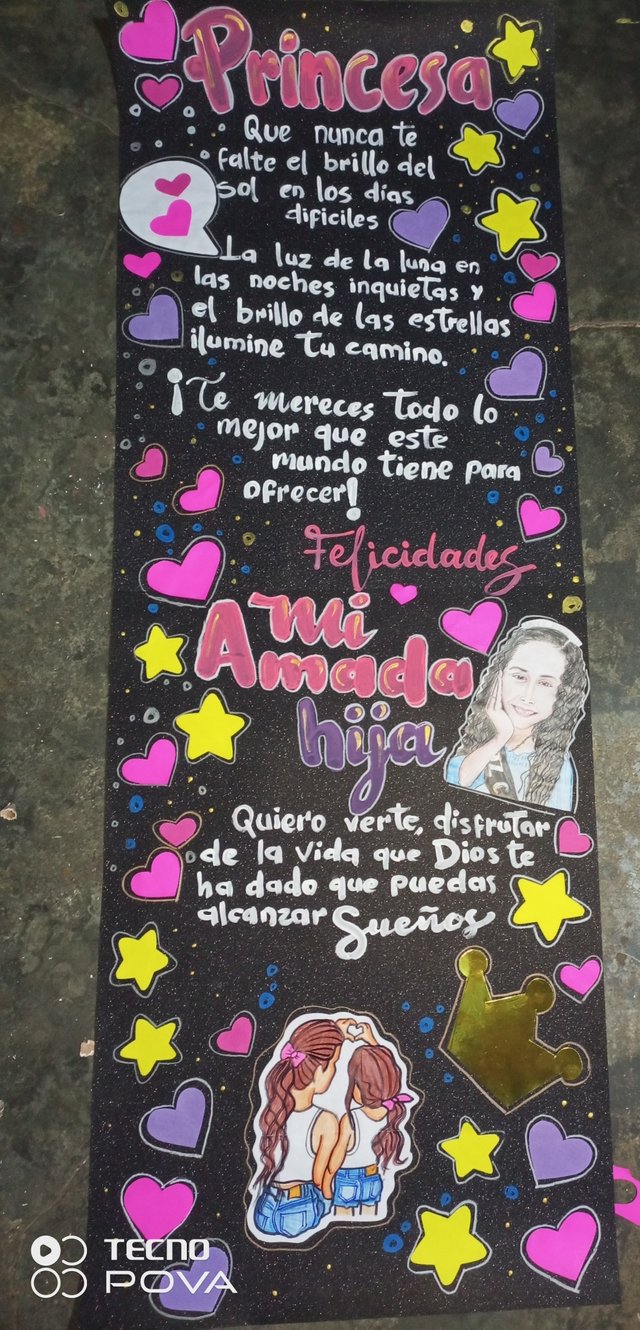 Princesa
Que nunca te
falte el brillo del
sol en los días
dificiles
La luz de la luna en
las noches inquietas y
el brillo de las estrellas
ilumine tu camino.
¡Te mereces todo lo
mejor que este
mundo tiene para
ofrecer!
Felicidades
Mi
Amada
hija
Quiero verte, disfrutar
de la vida que Dios te
ha dado que puedas
alcanzar Sueños
TECNO
POVA